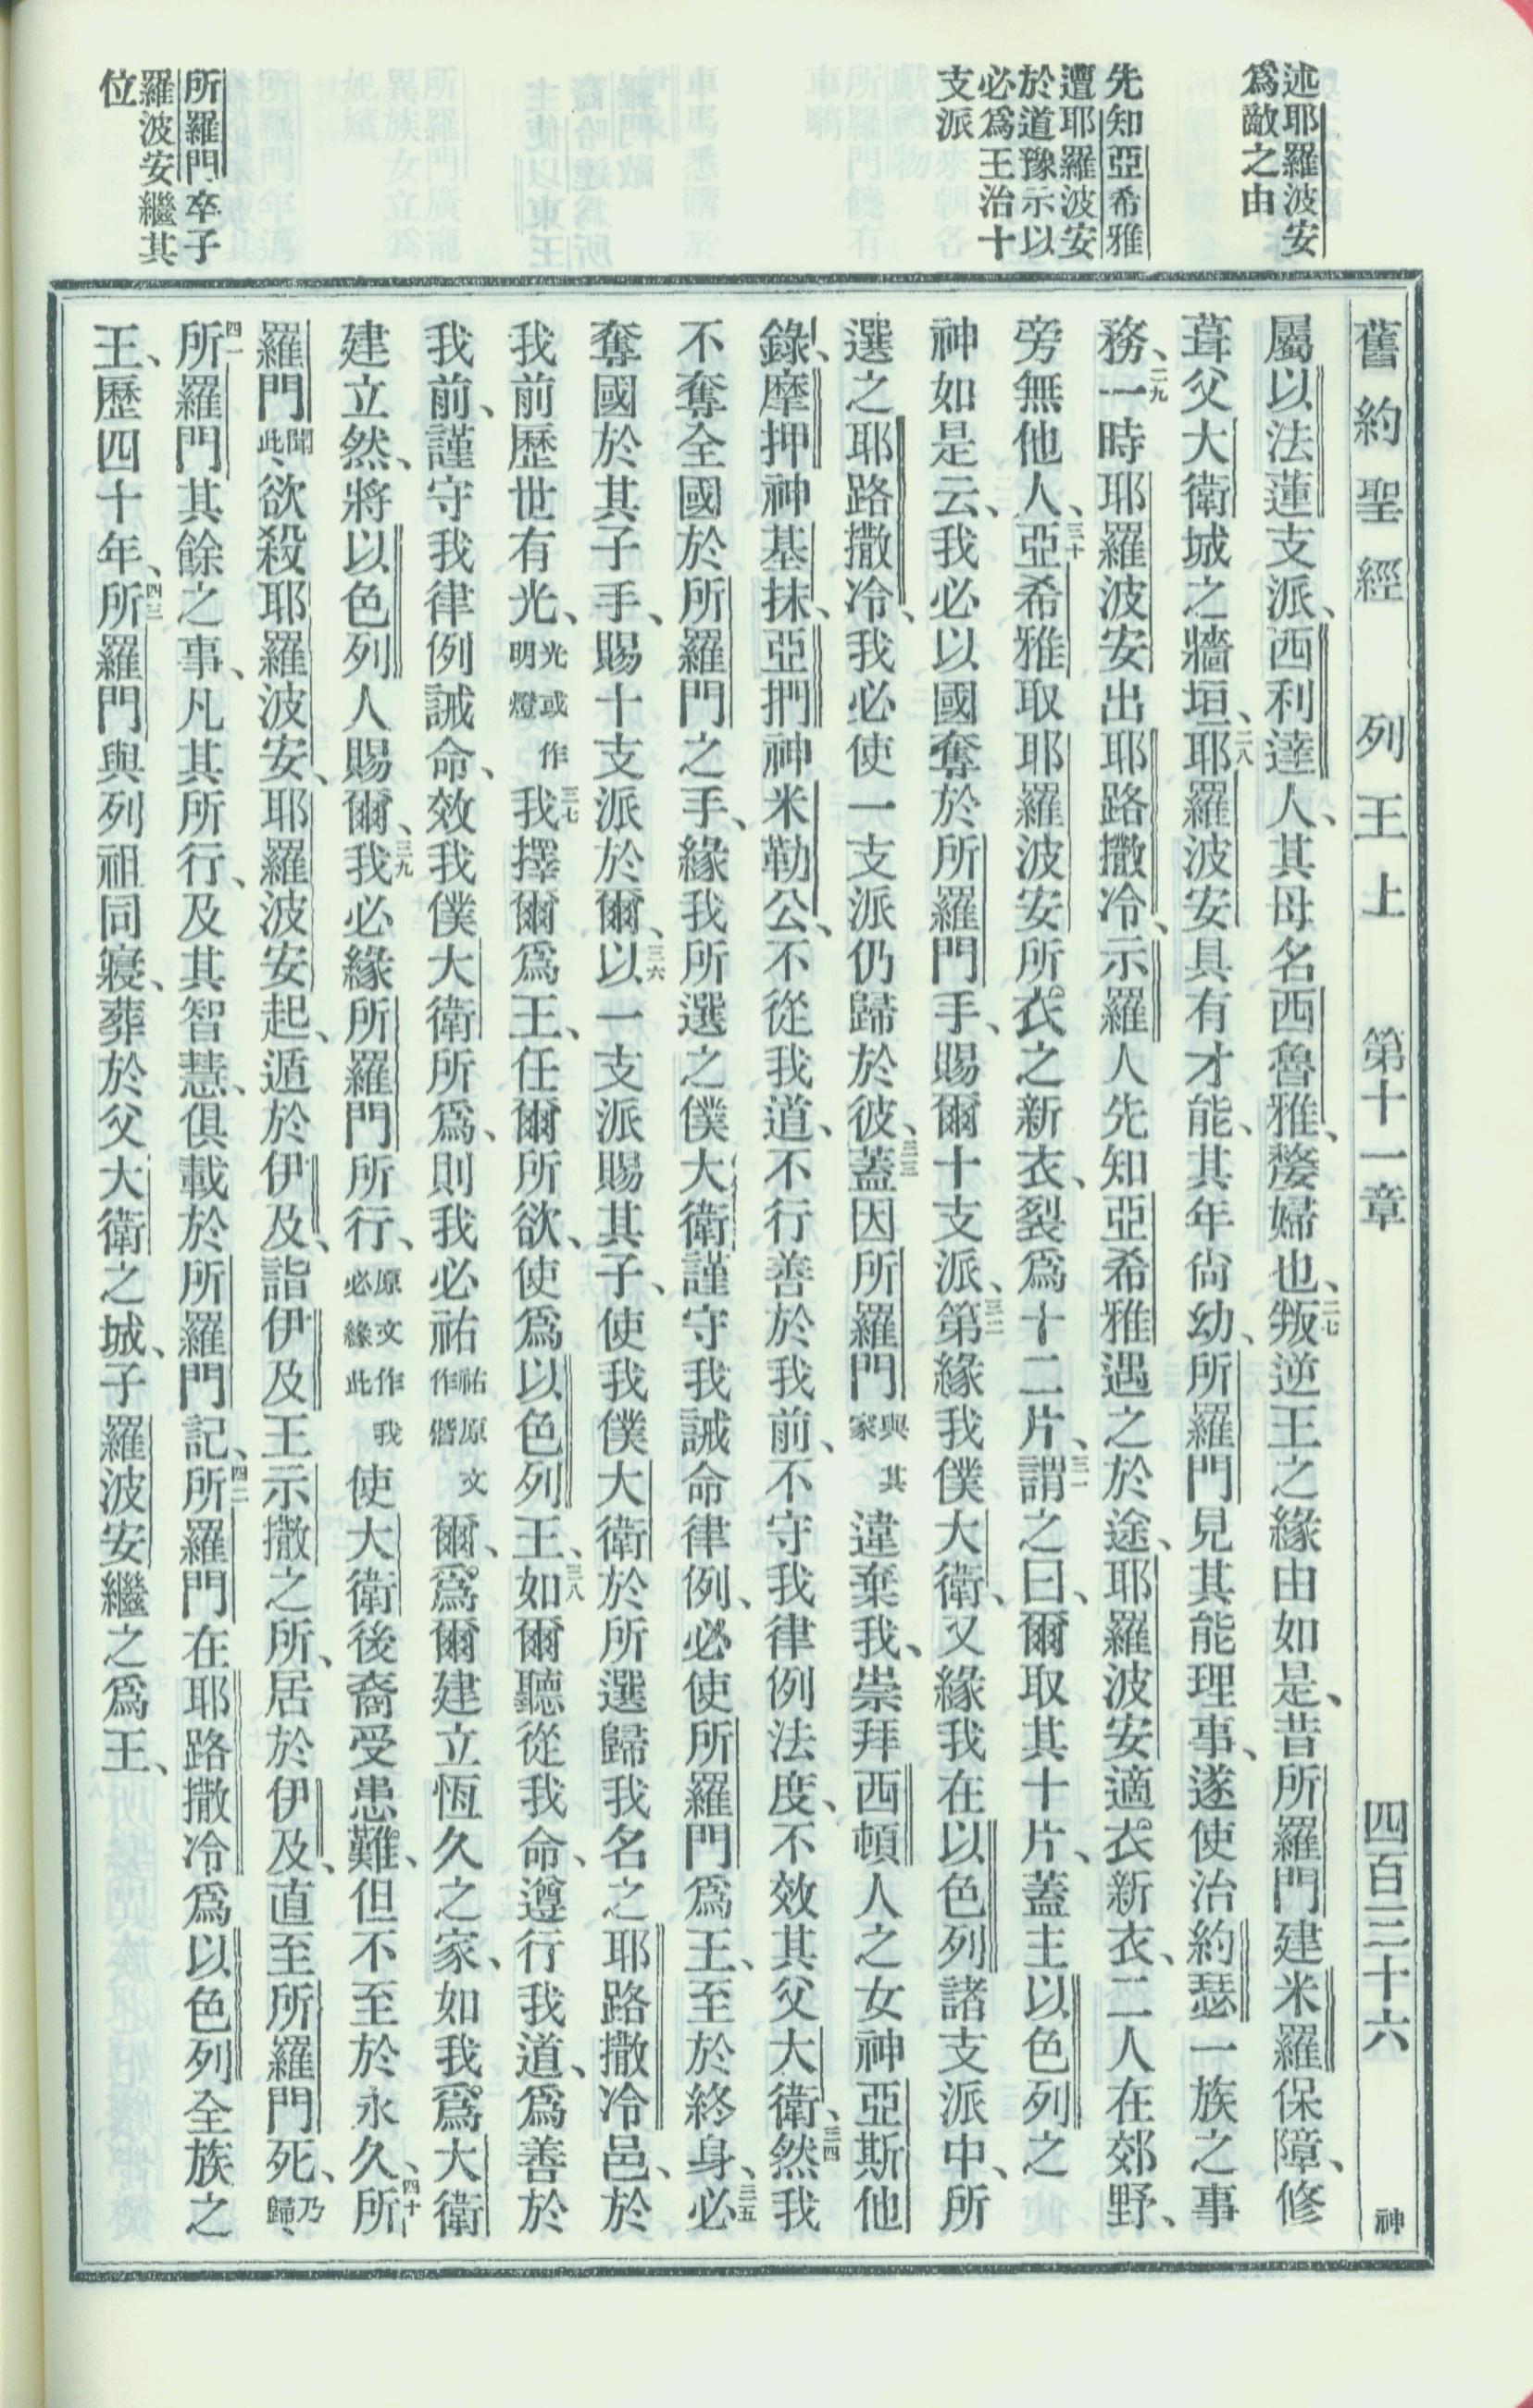 述耶羅波安
爲敵之由
先知亞希雅
遭耶羅波安
於道豫示以
必爲王治十
支派
所羅門卒子
羅波安繼其
位
舊約聖經 列王上 第十一章 四百三十六 神
屬以法蓮支派、西利達人、其母名西魯雅、嫠婦也、二七叛逆王之緣由如是、昔所羅門建米羅保障、修
葺父大衛城之牆垣、二八耶羅波安具有才能、其年尙幼、所羅門見其能理事、遂使治約瑟一族之事
務、二九一時耶羅波安出耶路撒冷、示羅人先知亞希雅遇之於途、耶羅波安適衣新衣、二人在郊野、
旁無他人、三十亞希雅取耶羅波安所衣之新衣、裂爲十二片、三一謂之曰、爾取其十片、蓋主以色列之
神如是云、我必以國奪於所羅門手、賜爾十支派、三二第緣我僕大衛、又緣我在以色列諸支派中、所
選之耶路撒冷、我必使一支派仍歸於彼、三三蓋因所羅門與其家違棄我、崇拜西頓人之女神亞斯他
錄、摩押神基抹、亞捫神米勒公、不從我道、不行善於我前、不守我律例法度、不效其父大衛、三四然我
不奪全國於所羅門之手、緣我所選之僕大衛謹守我誡命律例、必使所羅門爲王、至於終身、三五必
奪國於其子手、賜十支派於爾、三六以一支派賜其子、使我僕大衛於所選歸我名之耶路撒冷邑、於
我前歷世有光、光或作明燈三七我擇爾爲王、任爾所欲、使爲以色列王、三八如爾聽從我命、遵行我道、爲善於
我前、謹守我律例誡命、效我僕大衛所爲、則我必祐祐原文作偕爾、爲爾建立恆久之家、如我爲大衛
建立然、將以色列人賜爾、三九我必緣所羅門所行、原文作我必緣此使大衛後裔受患難、但不至於永久、四十所
羅門聞此、欲殺耶羅波安、耶羅波安起、遁於伊及、詣伊及王示撒之所、居於伊及、直至所羅門死、乃歸、
四一所羅門其餘之事、凡其所行、及其智慧、俱載於所羅門記、四二所羅門在耶路撒冷爲以色列全族之
王、歷四十年、四三所羅門與列祖同寢、葬於父大衛之城、子羅波安繼之爲王、